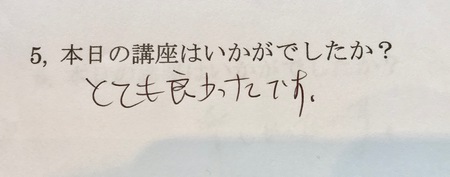 5, 本日の講座はいかがでしたか？
とても良かったです。